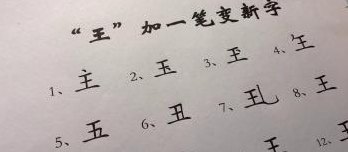 “王” 加一笔变新字
1、主 2、玉 3、 4、
5、五 6、丑 7、 8、王
王 12、王